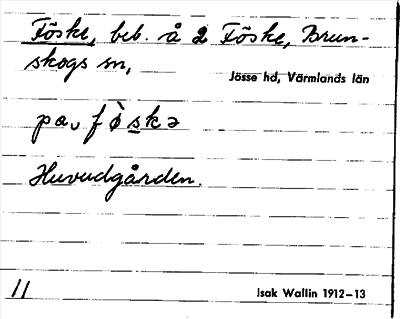 Föske, beb. å 2 Föske, Brun-
skogs sn,
Jösse hd, Värmlands län
pa, fò̈skə
Huvudgården.
11
Isak Wallin 1912–13